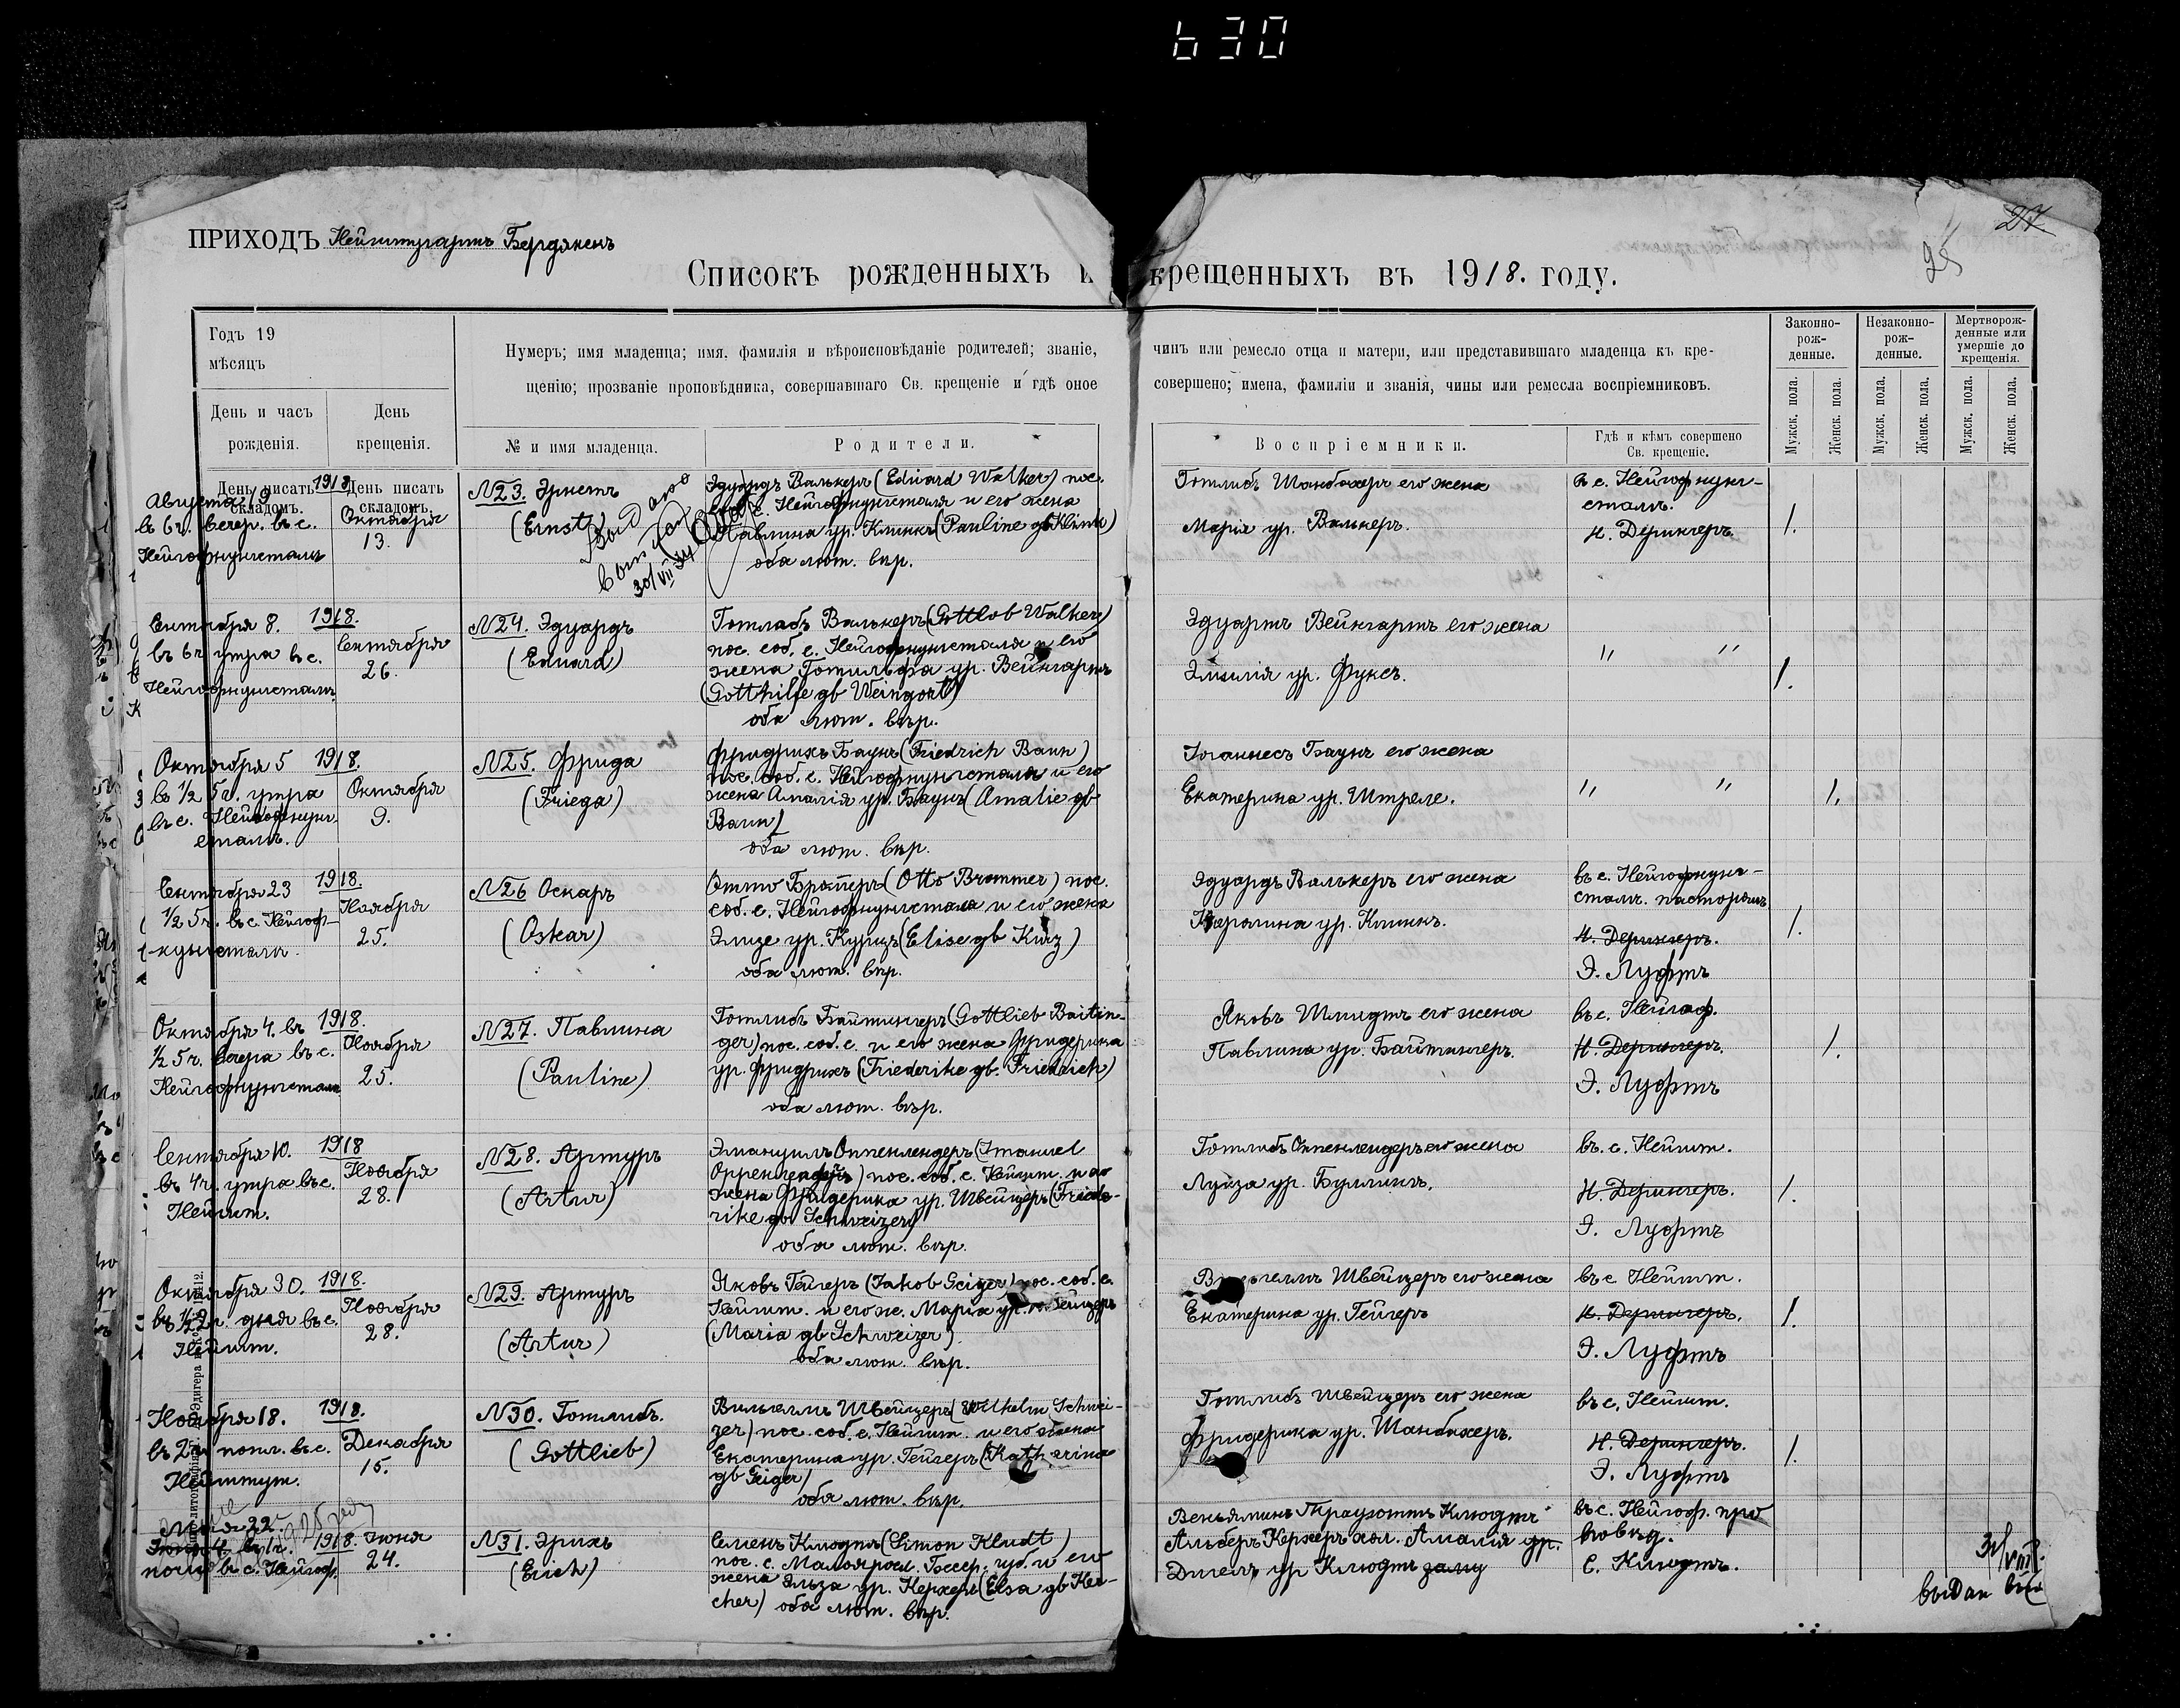 630
ПРИХОДЪ Нейштутгартъ Бердянскъ
27
25
Списокъ рожденныхъ и крещенныхъ въ 1918. году.
Годъ 19
мѣсяцъ
День и часъ
рожденія.
День
крещенія.
Нумеръ; имя младенца; имя, фамилія и вѣроисповѣданіе родителей; званіе, чинъ или ремесло отца и матери, или представившаго младенца къ кре-
щенію; прозваніе проповѣдника, совершавшаго Св. крещеніе и гдѣ оное совершено; имена, фамиліи и званія, чины или ремесла воспріемниковъ.
№ и имя младенца.
Родители.
Воспріемники.
Гдѣ и кѣмъ совершено
Св. крещеніе.
Законно-
рож-
денные.
Незаконно-
рож-
денные.
Мертворож-
денные или
умершіе до
крещенія.
Мужск. пола.
Женск. пола.
Мужск. пола.
Женск. пола.
Мужск. пола.
Женск. пола.
День писать
складомъ.
День писать
складомъ.
Августа 19
въ 6 ч. вечер. въ с.
Нейгофнунгсталь
1918
Октября
13.
N23. Эрнстъ
(Ernst)
30/VII
Эдуардъ Валькеръ (Eduard Walker) пос.
с. Нейгофнунгсталя и его жена
Павлина ур. Клинкъ (Pauline gb Klink)
оба лют. вѣр.
Готлибъ Шанбахеръ его жена
Марія ур. Валькеръ.
въ с. Нейгофнунг-
сталь.
Н. Дерингеръ.
1.
Сентября 8.
въ 6 ч утра въ с.
Нейгофнунгсталь.
1918.
Сентября
26.
N24. Эдуардъ
(Eduard)
Готлобъ Валькеръ (Gottlob Walker)
пос. соб. с. Нейгофнунгсталя и его
жена Готильфа ур. Вейнгартъ
(Gotthilfe gb Weingart)
оба лют. вѣр.
Эдуартъ Вейнгартъ его жена
Эмилія ур. Фуксъ.
" "
1.
Октября 5
въ 1/2 5 ч. утра
въ с. Нейгофнунг-
сталь.
1918.
Октября
9.
N25. Фрида
(Frieda)
Фридрихъ Баунъ (Friedrich Baun)
пос. соб. с. Нейгофнунгсталя и его
жена Амалія ур. Баунъ (Amalie gb
Baun)
оба лют. вѣр.
Іоганнесъ Баунъ его жена
Екатерина ур. Штреле.
" "
1.
Сентября 23
1/2 5 ч. въ с. Нейгоф-
нунгсталь.
1918.
Ноября
25.
N26 Оскаръ
(Oskar)
Отто Бромеръ (Otto Brommer) пос.
соб. с. Нейгофнунгсталя и его жена
Элизе ур. Курцъ (Elise gb Kurz)
оба лют. вѣр.
Эдуардъ Валькеръ его жена
Каролина ур. Клинкъ.
въ с. Нейгофнунг-
сталь. пасторомъ
Н. Дерингеръ.
Э. Луфтъ
1.
Октября 4. въ
1/2 5 ч. вечера въ с.
Нейгофнунгсталь
1918.
Ноября
25.
N27. Павлина
(Pauline)
Готлибъ Байтингеръ (Gottlieb Baitin-
ger) пос. соб. с. и его жена Фридерика
ур. Фридрихъ (Friederike gb. Friedrich)
оба лют. вѣр.
Яковъ Шмидтъ его жена
Павлина ур. Байтингеръ.
въ с. Нейгоф.
Н. Дерингеръ.
Э. Луфтъ
1.
Сентября 10.
въ 4 ч. утра въ с.
Нейшт.
1918
Ноября
28.
N28. Артуръ
(Artur)
Эмануилъ Оппенлендеръ (Imanuel
Oppenlender) пос. соб. с. Нейшт. и его
жена Фридерика ур. Швейцеръ (Friede-
rike gb Schweizer)
оба лют. вѣр.
Готлибъ Оппенлендеръ его жена
Луиза ур. Буллингъ.
въ. с. Нейшт.
Н. Дерингеръ.
Э. Луфтъ
1.
Октября 30.
дня въ с.
Нейшт.
1918.
Ноября
28.
N29. Артуръ
(Artur)
Яковъ Гейгеръ (Jakob Geiger) пос. соб. с.
Нейшт. и его ж. Марія ур. Швейцеръ
(Maria gb Schweizer).
оба лют. вѣр.
Швейцеръ его жена
Екатерина ур. Гейгеръ
въ с Нейшт.
Н. Дерингеръ.
Э. Луфтъ
1.
Ноября 18.
въ 2 ч попол. въ с.
Нейштут.
1918.
Декабря
15.
N30. Готлибъ.
(Gottlieb)
Вильгелмъ Швейцеръ (Wilhelm Schwei-
zer) пос. соб. с. Нейшт. и его жена
Екатерина ур. Гейгеръ (Katharina
gb Geiger)
оба лют. вѣр.
Готлибъ Швейцеръ его жена
Фридерика ур. Шанбахеръ.
въ с. Нейшт.
Н. Дерингеръ.
Э. Луфтъ
1.
22.
ночи въ с. Нейгоф.
1918. Іюня
24.
N31. Эрихъ
(Erich)
Семенъ Клюдтъ (Simon Kludt)
пос. с. Малояросл. Бессар. губ. и его
жена Эльза ур. Керхеръ (Elsa gb Ker-
cher) оба лют. вѣр.
Веньяминъ Трауготтъ Клюдтъ
Альберъ Керхеръ Амалія ур.
ур Клюдтъ
въ с. Нейгоф. про
повѣд.
С. Клюдтъ.
31/VIII
выдан